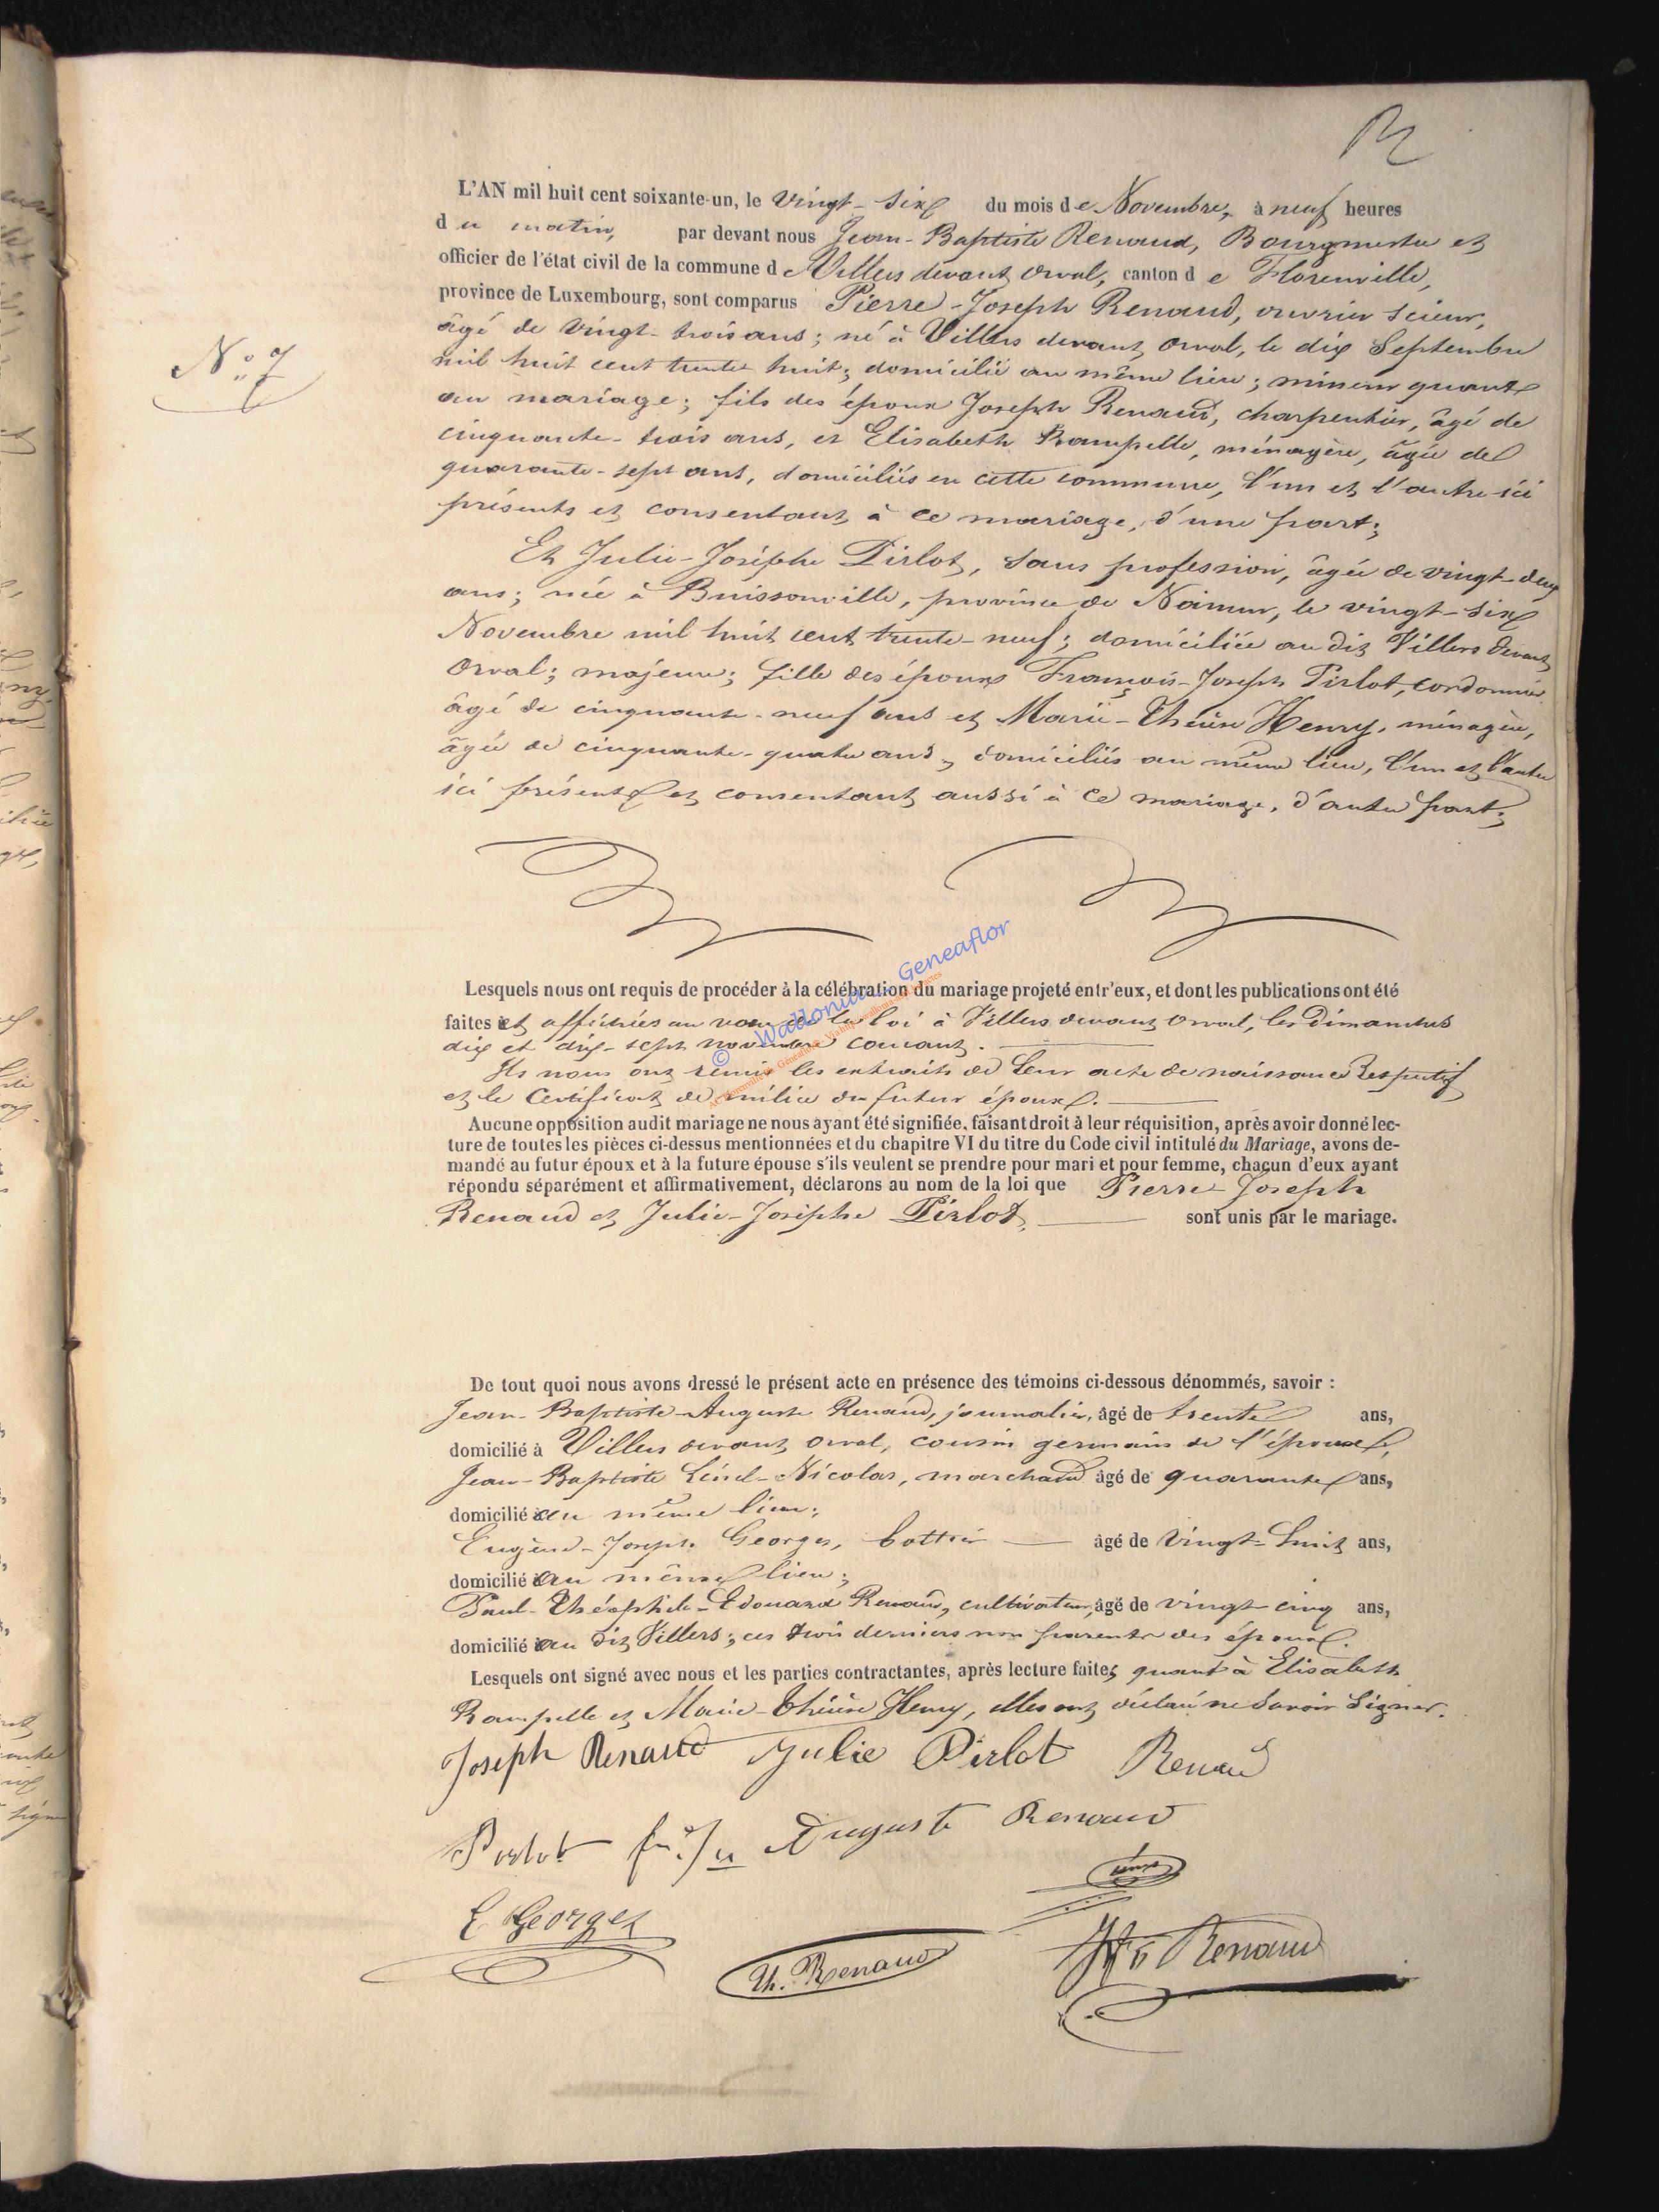 L'AN mil huit cent soixante-un, le vingt-six du mois de Novembre, à neuf heures
du matin, par devant nous Jean-Baptiste Renaud, Bourgmestre et
officier de l'état civil de la commune de Villers devant Orval, canton de Florenville,
province de Luxembourg, sont comparus Pierre-Joseph Renaud, ouvrier scieur,
âgé de vingt-trois ans; né à Villers devant Orval, le dix Septembre
mil huit cent trente huit; domicilié au même lieu; mineur quant
au mariage; fils des époux Joseph Renaud, charpentier, âgé de
cinquante-trois ans, et Elisabeth Rampelle, ménagère, âgée de
quarante-sept ans, domiciliés en cette commune, l'un et l'autre ici
présents et consentant à ce mariage, d'une part;
N° 7
Et Julie-Josèphe Pirlot, sans profession, âgée de vingt-deux
ans; née à Buissonville, province de Namur, le vingt-six
Novembre mil huit cent trente-neuf; domiciliée au dit Villers devant
Orval; majeure; fille des époux François-Joseph Pirlot, cordonnier
âgé de cinquante-neuf ans et Marie-Thérèse Henry, ménagère,
âgée de cinquante-quatre ans, domiciliés au même lieu, l'un et l'autre
ici présents et consentant aussi à ce mariage, d'autre part;
Lesquels nous ont requis de procéder à la célébration du mariage projeté entr'eux, et dont les publications ont été
faites et affichées au vœu de la loi à Villers devant Orval, les Dimanches
dix et dix-sept novembre courant.
Ils nous ont remis les extraits de leur acte de naissance respectif
et le certificat de milice du futur époux.
© Wallonia Geneaflor
Aucune opposition audit mariage ne nous ayant été signifiée, faisant droit à leur réquisition, après avoir donné lec-
ture de toutes les pièces ci-dessus mentionnées et du chapitre VI du titre du Code civil intitulé du Mariage, avons de-
mandé au futur époux et à la future épouse s'ils veulent se prendre pour mari et pour femme, chacun d'eux ayant
répondu séparément et affirmativement, déclarons au nom de la loi que Pierre Joseph
Renaud et Julie-Josèphe Pirlot, sont unis par le mariage.
De tout quoi nous avons dressé le présent acte en présence des témoins ci-dessous dénommés, savoir :
Jean-Baptiste-Auguste Renaud, journalier, âgé de trente ans,
domicilié à Villers devant Orval, cousin germain de l'époux,
Jean-Baptiste Nicolas, marchand âgé de quarante ans,
domicilié au même lieu;
Eugène-Joseph Georges, bottier âgé de vingt-huit ans,
domicilié au même lieu;
Paul-Théophile-Edouard Renaud, cultivateur, âgé de vingt cinq ans,
domicilié au dit Villers; ces trois derniers non parents des époux.
Lesquels ont signé avec nous et les parties contractantes, après lecture faite; quant à Elisabeth
Rampelle et Marie-Thérèse Henry, elles ont déclaré ne savoir signer.
Joseph Renaud Julie Pirlot Renaud
Pirlot Auguste Renaud
E Georges
Th. Renaud Renaud